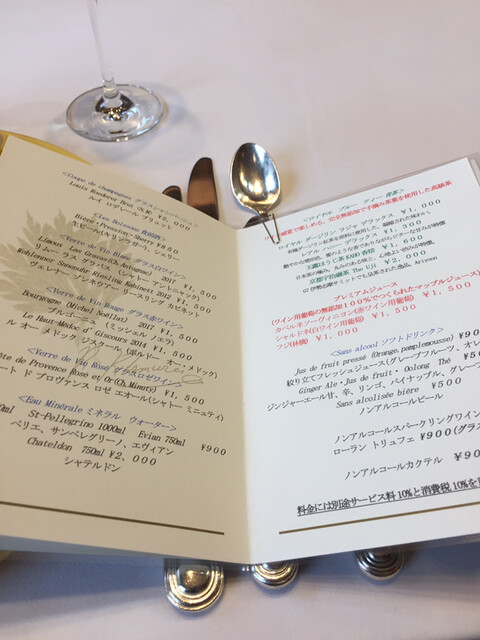 <Coupe de champagne グラスシャンパーニュ>
Louis Roederer Brut 泡発 ¥2,000
ルイ ロデレール ブリュット
<Les Boissons 食前酒>
Bière・Pression・Sherry ¥950
生ビール(キリンラガー), シェリー
<Verre de Vin Blanc グラス白ワイン>
2017 ¥1,500
リムー ラス グラバス (シャトー アントニャック)
Riesling Kabinett 2012 ¥1,500
リースリング カビネット
<Verre de Vin Rouge グラス赤ワイン>
Bourgogne (Michel Noëllat) 2017 ¥1,500
ブルゴーニュ (ミッシェル ノエラ)
Le Haut-Médoc d'Giscours 2014 ¥1,500
ル オー メドック ジスクール (ボルドー オー・メドック)
<Verre de Vin Rosé グラスロゼワイン>
de Provence Rosé et Or(Ch.Minuty) ¥1,500
ート ド プロヴァンス ロゼ エオール(シャトー ミニュティ)
<Eau Minérale ミネラル ウォーター>
St-Pellegrino 1000ml Evian 750ml ¥900
ペリエ, サンペレグリーノ, エヴィアン
Chateldon 750ml ¥2,000
シャテルドン
<ロイヤル ブルー ティー 青茶>
完全無添加で手摘み茶葉を使用した高級茶
ロイヤル ダージリン ラジャ デラックス ¥1,000
¥1,000
玉露ほうじ茶 KAHO 香焙 ¥600
京都宇治碾茶 The Uji ¥2,000
プレミアムジュース
(ワイン用葡萄の無添加100%でつくられたマップルジュース)
カベルネソーヴィニヨン(赤ワイン用葡萄)
シャルドネ(白ワイン用葡萄) ¥1,000
フジ(林檎) ¥1,500
<Sans alcool ソフトドリンク>
Jus de fruit pressé (Orange, pamplemousse) ¥90
絞りたてフレッシュジュース(グレープフルーツ, オレ
Ginger Ale・Jus de fruit・Oolong Thé ¥5
ジンジャーエール甘, 辛, リンゴ, パイナップル, グレープ
Sans alcolisée bière ¥500
ノンアルコールビール
ノンアルコールスパークリングワイン
ローラン トリュフェ ¥900(グラス
ノンアルコールカクテル ¥90
料金には別途サービス料10%と消費税10%を